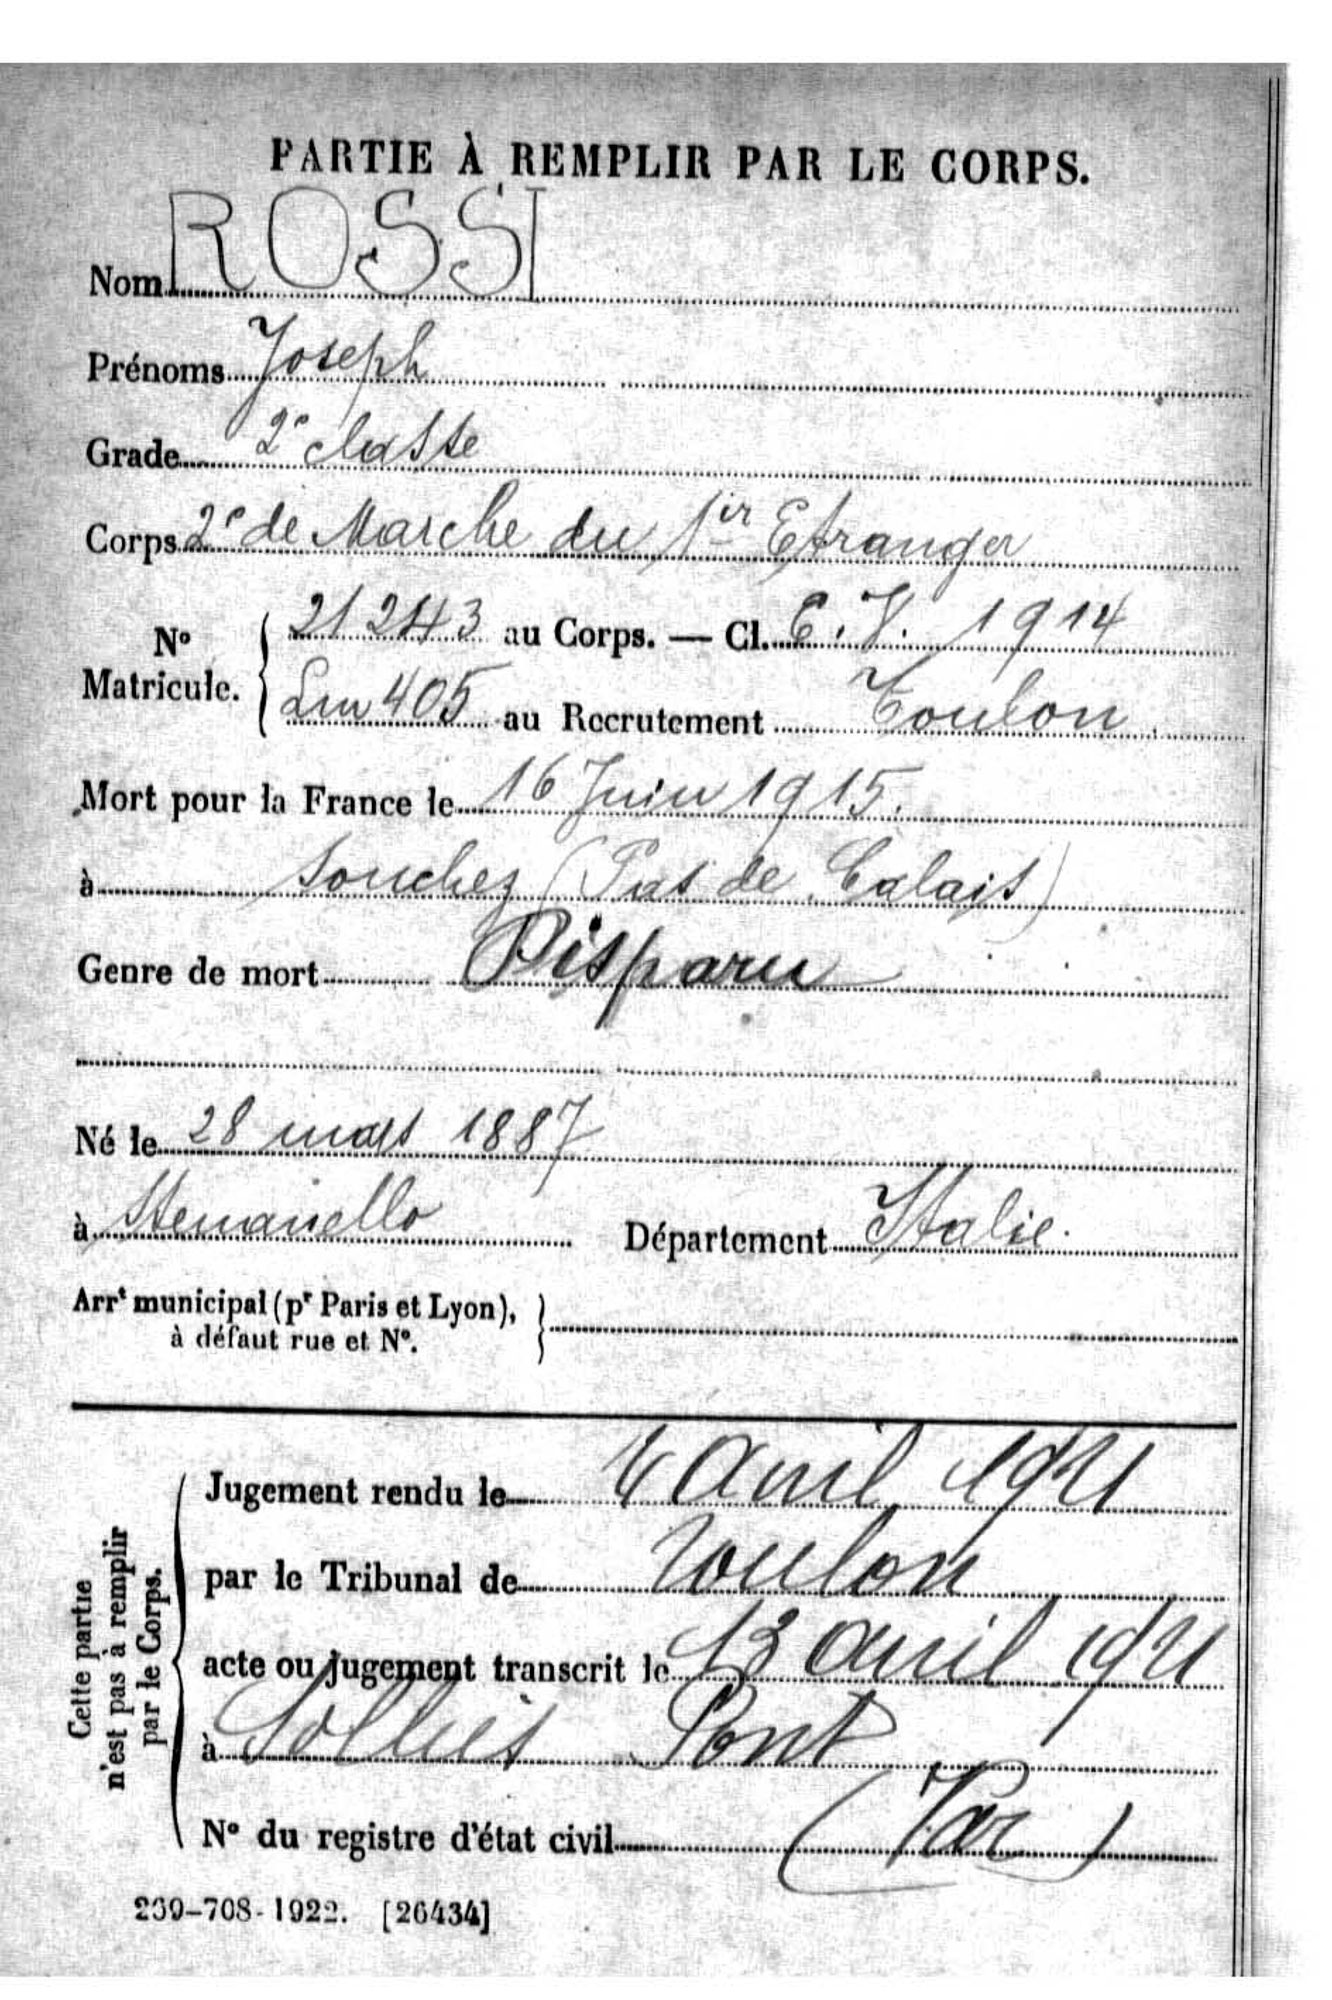 PARTIE À REMPLIR PAR LE CORPS.
Nom ROSSI
Prénoms Joseph
Grade 2e classe
Corps 2e de Marche du 1er Etranger
No Matricule. { 21243 au Corps. — Cl. E.V. 1914
Lm 405 au Recrutement Toulon
Mort pour la France le 16 Juin 1915.
à Souchez (Pas de Calais)
Genre de mort Disparu
Né le 28 mars 1887
à Département Italie.
Arrt municipal (pr Paris et Lyon), }
à défaut rue et No.
Cette partie
n'est pas à remplir
par le Corps.
Jugement rendu le Avril 1921
par le Tribunal de Toulon
acte ou jugement transcrit le 13 avril 1921
à Sollies Pont
No du registre d'état civil (Var)
239-708-1922. [26434]